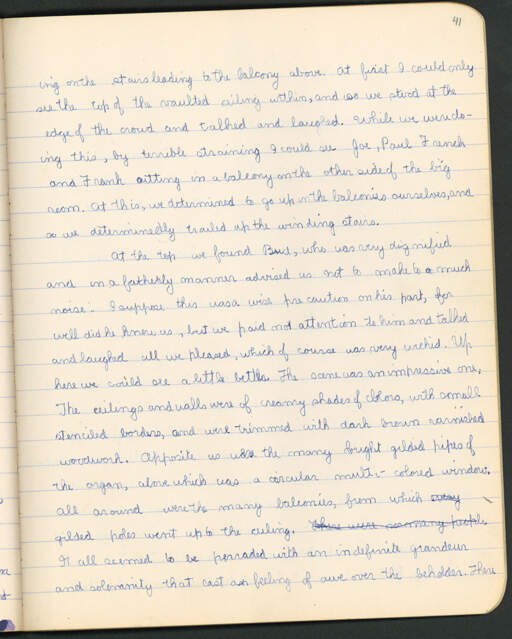 41
ing on the stairs leading to the balcony above. At first I could only
see the top of the vaulted ceiling within, and so we stood at the
edge of the crowd and talked and laughed. While we were do-
ing this, by terrible straining I could see Joe, Paul French
and Frank sitting in a balcony on the other side of the big
room. At this, we determined to go up in the balconies ourselves, and
so we determinedly trailed up the winding stairs.
At the top we found Bill, who was very dignified
and in a fatherly manner advised us not to make to a much
noise. I suppose this was a wise precaution on his part, for
well did he know us, but we paid not attention to him and talked
and laughed all we pleased, which of course was very wicked. Up
here we could see a little better. The scene was an impressive one,
The ceilings and walls were of creamy shades of colors, with small
stenciled borders, and were trimmed with dark brown varnished
woodwork. Opposite us was the many bright gilded pipes of
the organ, above which was a circular multi-colored window,
all around were the many balconies, from which
gilded poles went up to the ceiling. There were so many people
It all seemed to be pervaded with an indefinite grandeur
and solemnity that cast a feeling of awe over the beholder. There